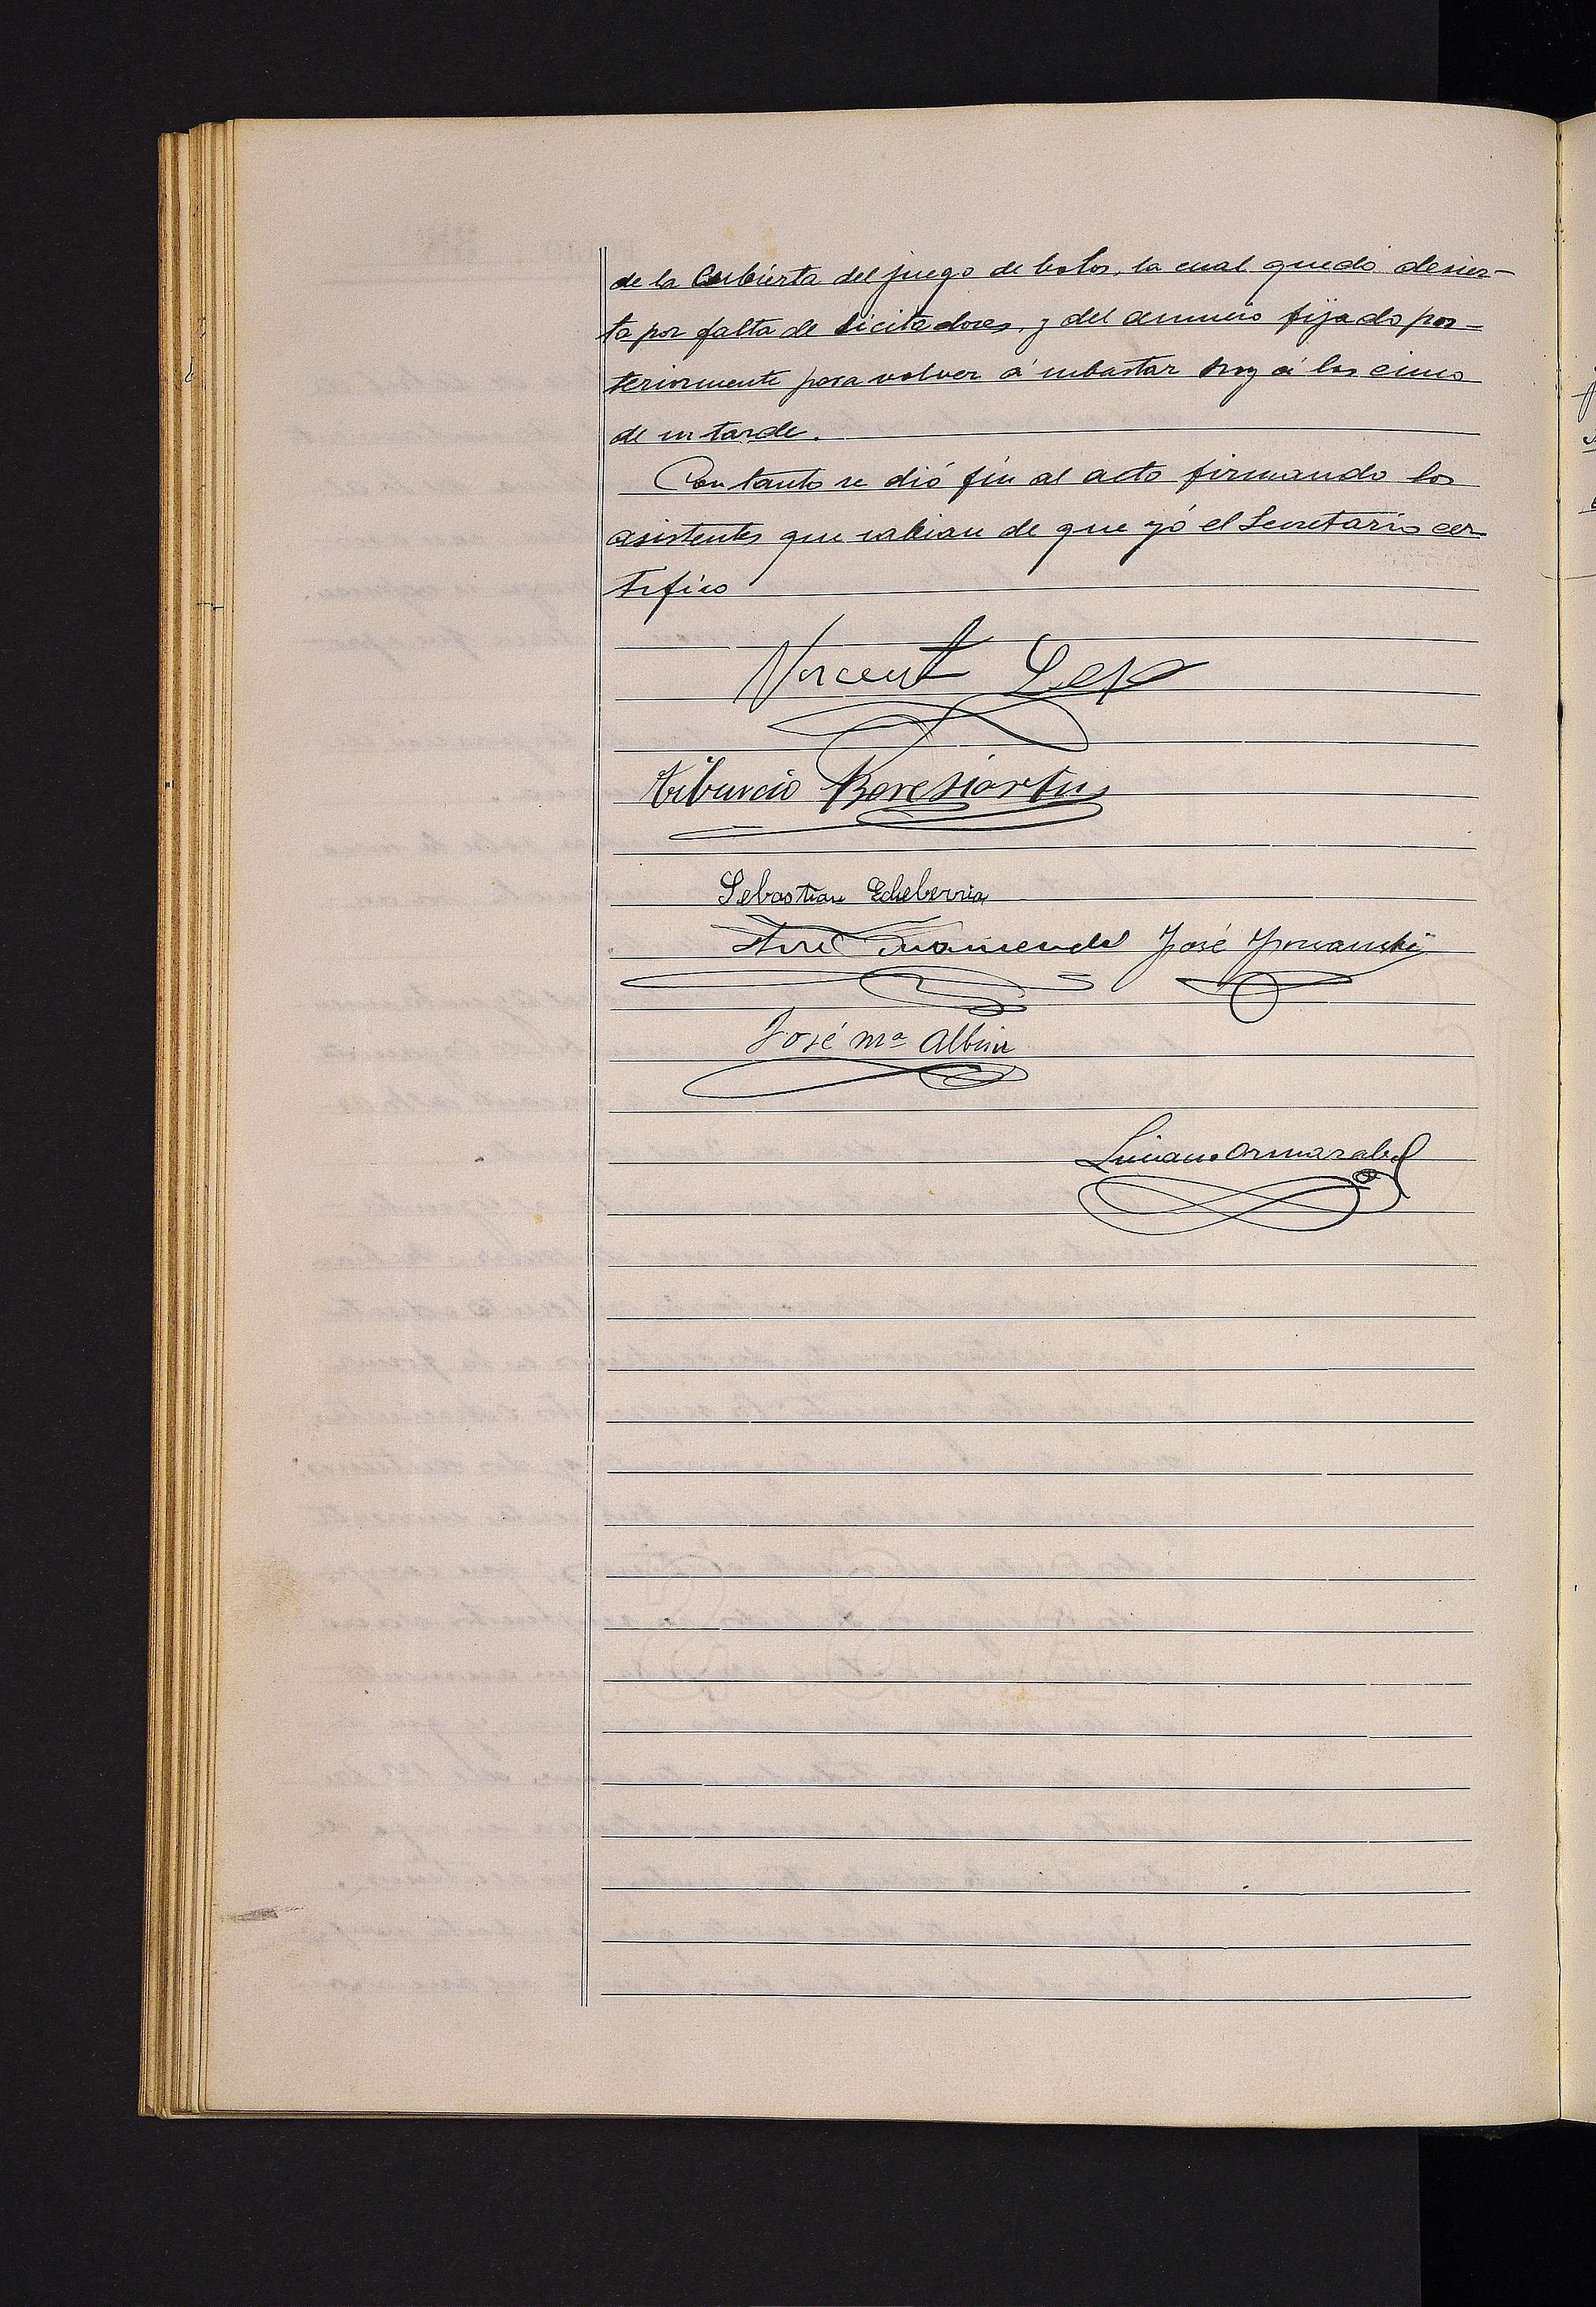 de la Cubierta del juego de bolos, la cual quedó desier-
ta por falta de licitadores, y del anuncio fijado pos-
teriormente para volver á subastar hoy á las cinco
de su tarde.
Con tanto se dió fin al acto firmando los
asistentes que sabian de que yó el Secretario cer-
tifico
Vicente
Tiburcio
Sebastian Echeberria
José
José Mª Albisu
Luciano Ormazabal